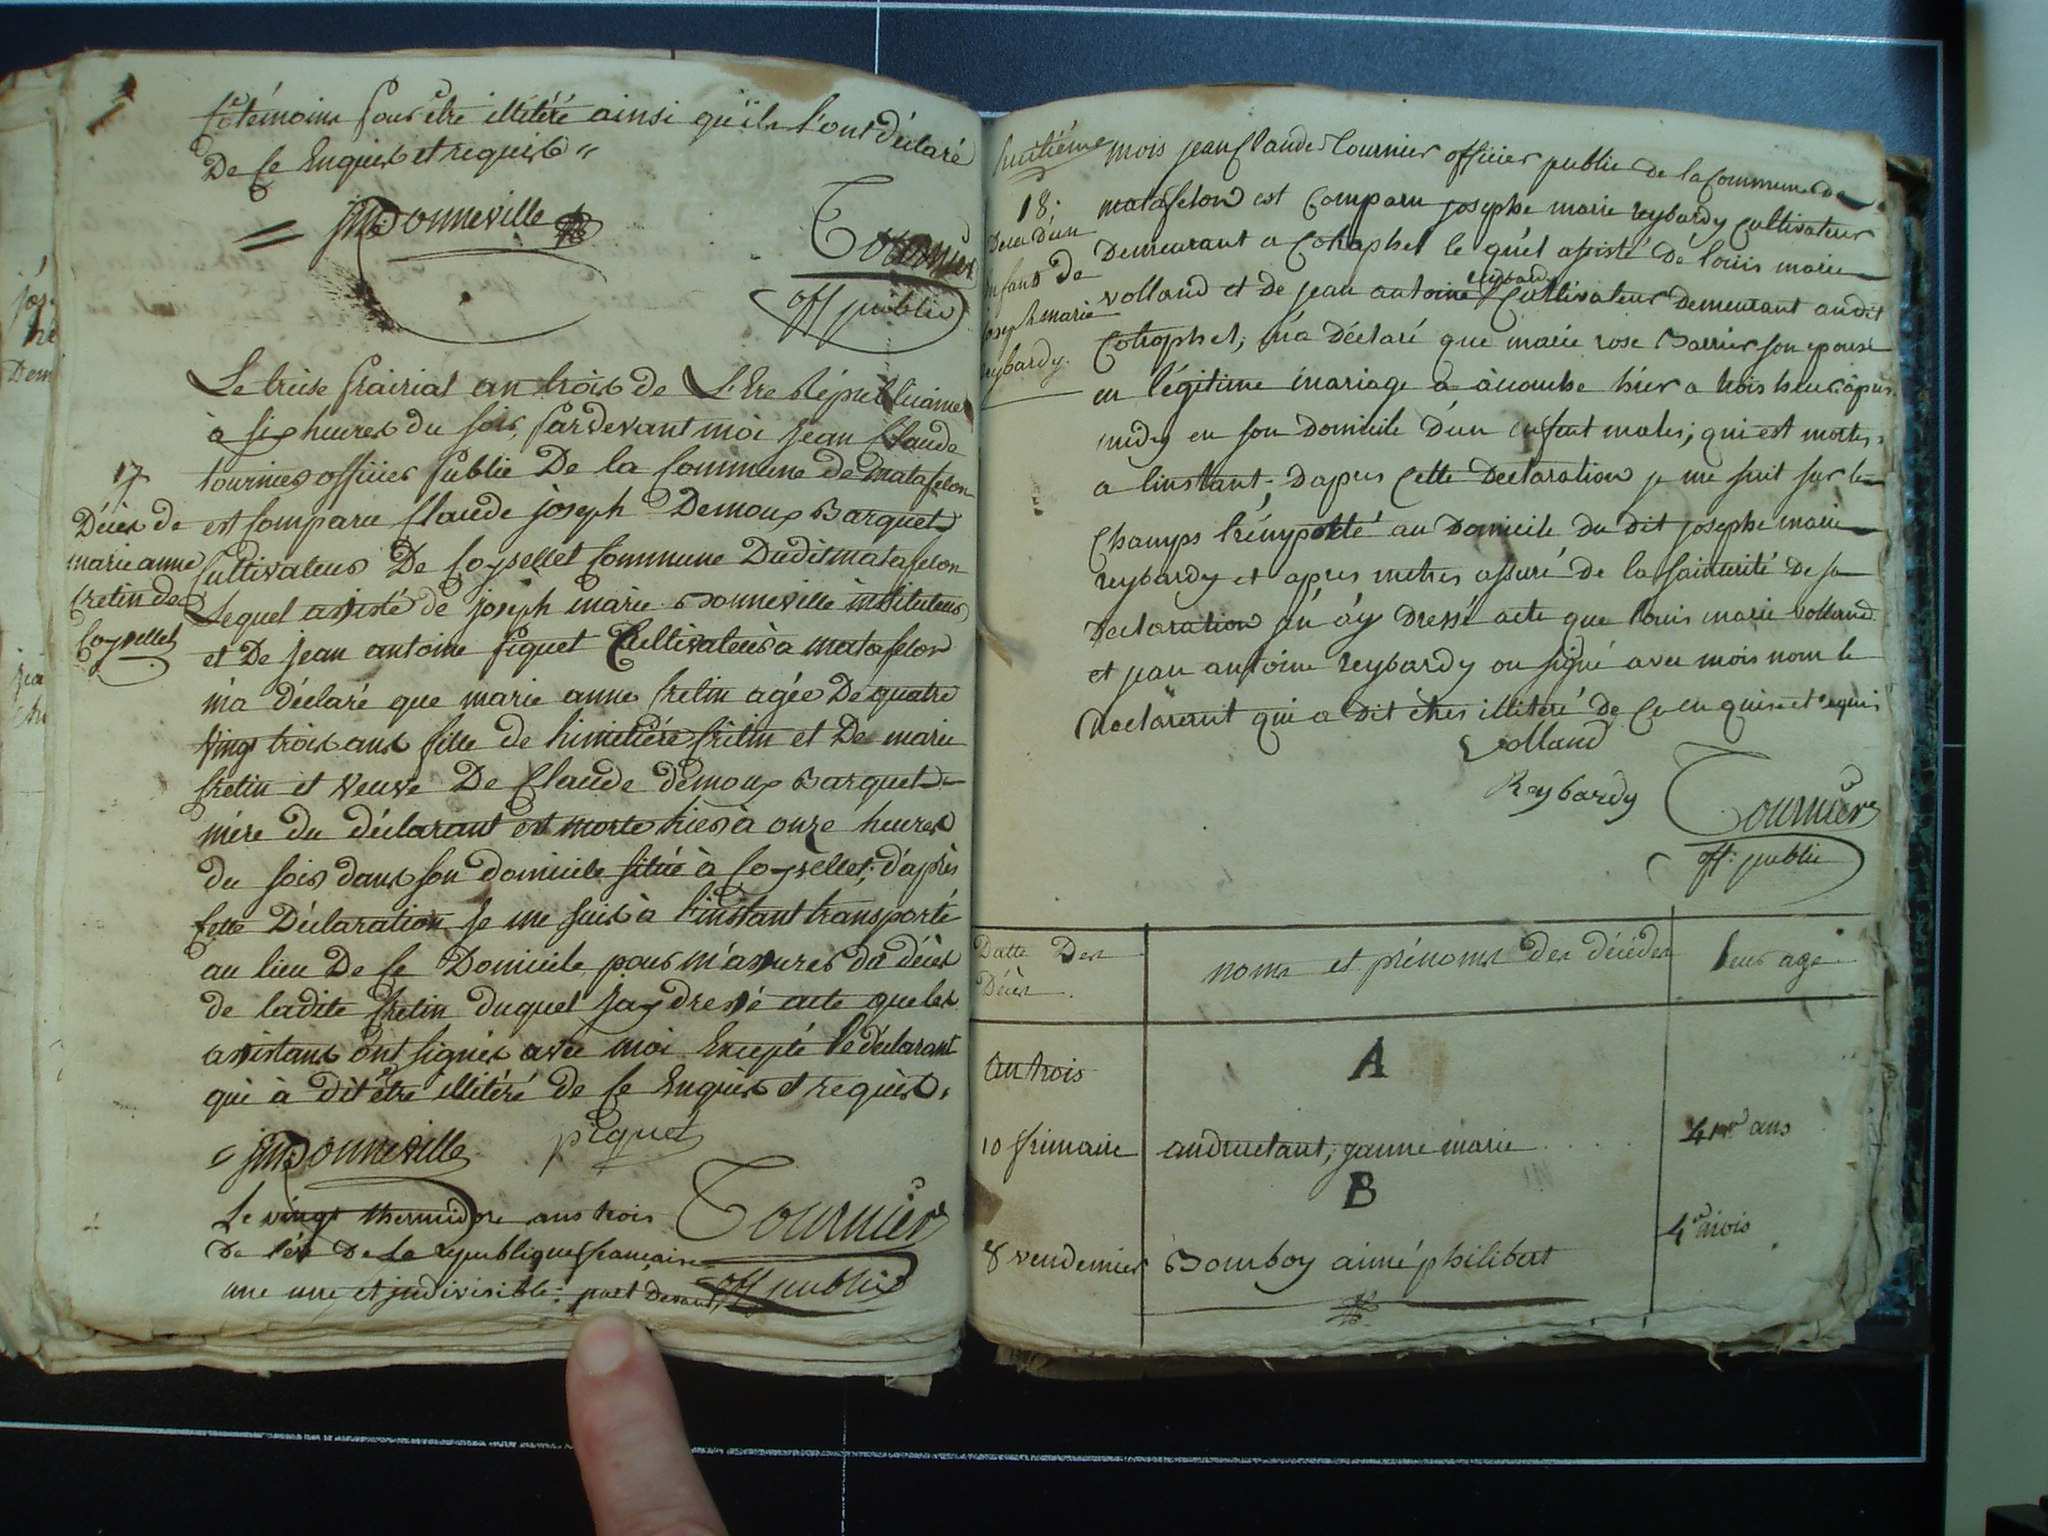 témoins pour être illitéré ainsi qu'ils l'ont déclaré
De Ce Enquis et requis
jmDonneville
Tournier
off public
Le treize prairial an trois de L'Ere Républicaine
à six heures du soir, pardevant moi jean Claude
tournier officier public De la Commune de matafelon
est Comparu Claude joseph Demoux Barquet
Cultivateur De Coysellet Commune Dudit matafelon
Lequel assisté de joseph marie Donneville instituteur
et De jean antoine piquet Cultivateur à matafelon
m'a déclaré que marie anne Cretin agée De quatre
vingt trois ans fille de Cretin et De marie
Cretin et veuve De Claude demoux Barquet
mère du déclarant est morte hier à onze heures
du soir dans son domicile situé à Coysellet; d'après
Cette Déclaration je me suis à l'instant transporté
au lieu De Ce Domicile pour m'assurer du décès
de ladite Cretin duquel j'ay dressé acte que les
assistans ont signés avec moi Excepté le déclarant
qui à dit être illitéré de Ce Enquis et requis.
17
Décès de
marie anne
Cretin de
Coysellet
jmDonneville
piquet
Tournier
off public
Le vingt thermidore ans trois
De l'ére De La republique française
une une et indivisible: part devant
huitiéme mois jean Claude Tournier officier public de la Commune de
matafelon est Comparu josephe marie reybardy Cultivateur
Demeurant a Cotrophet le quel assisté De louis marie
reybardy
volland et de jean antoine Cultivateur Demeurant audit
Cotrophet; m'a Déclaré que marie rose Barrier son epouse
en légitime mariage a acouche hier a trois heur apres
midy en son Domicile D'un enfant males; qui est mortes
a linstant; Dapres Cette Declaration je me suit sur le
Champs au Domicile du dit josephe marie
reybardy et apres metres assuré de la sainterité de sa
Declaration j'en ay Dressé acte que louis marie volland
et jean antoine reybardy on signé avec mois nom le
Declarant qui a dit etres illiteré de Ce en quise et requis
18.
Deces dun
enfant de
joseph marie
reybardy.
volland
Reybardy
Tournier
off: public
Datte Des
Décès
noms et prénoms des décédés
leur age
an trois
A
10 frimaire
andruetant, janne marie
B
8 vendemier
Bomboy aimé philibert
4 mois